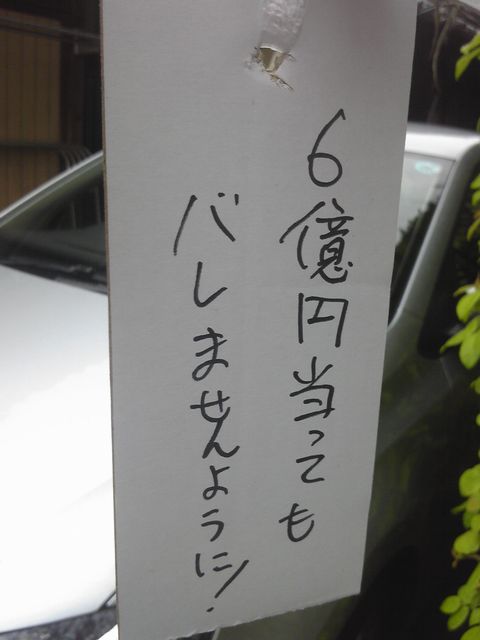 6億円当っても
バレませんように!